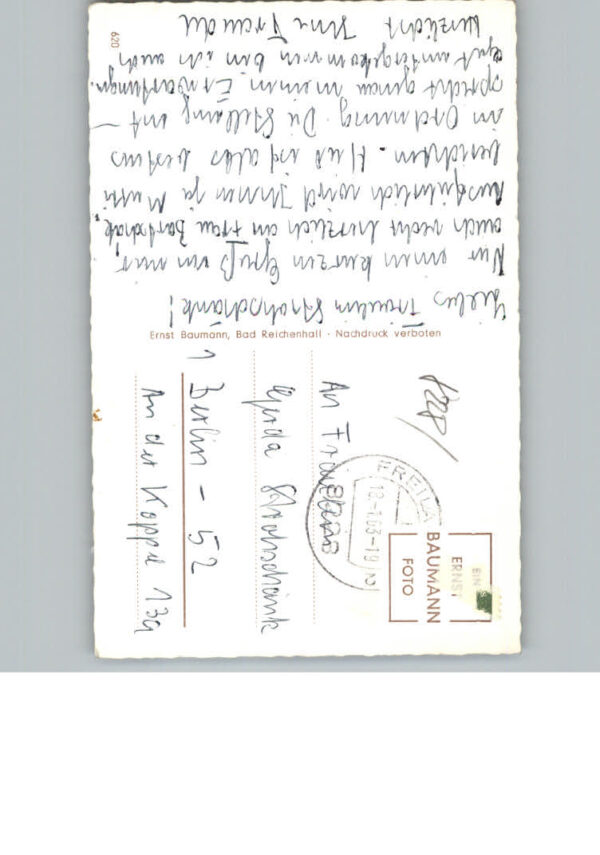 Liebes Fräulein Strohschänk!
Nur einen kurzen Gruß von mir,
auch recht herzlich an Frau Bartschat.
Ausführlich wird Ihnen ja Mutti
berichten. Hier ist alles bestens
in Ordnung. Die Stellung ent-
spricht genau meinen Erwartungen.
gut untergekommen bin ich auch
Herzlichst Ihre Traudel
620
Ernst Baumann, Bad Reichenhall · Nachdruck verboten
An Fräulein
Gerda Strohschänk
1 Berlin - 52
An der Koppel 13a
FREILA
18.-1.63-19
8228
EIN
ERNST
BAUMANN
FOTO